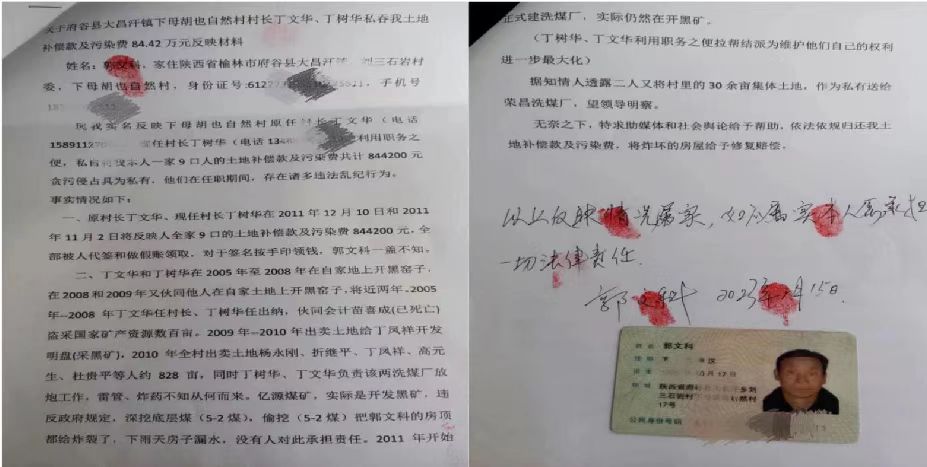 关于府谷县大昌汗镇下母胡也自然村村长丁文华、丁树华私吞我土地
补偿款及污染费 84.42 万元反映材料
姓名：郭文科，家住陕西省榆林市府谷县大昌汗 刘三石岩村
委，下母胡也自然村，身份证号:612 ，手机号
民我实名反映下母胡也自然村原任村长丁文华（电话
1589112 现任村长丁树华（电话 134 利用职务之
便，私自将我本人一家 9 口人的土地补偿款及污染费共计 844200 元
贪污侵占具为私有，他们在任职期间，存在诸多违法乱纪行为。
事实情况如下：
一、原村长丁文华、现任村长丁树华在 2011 年 12 月 10 日和 2011
年 11 月 2 日将反映人全家 9 口的土地补偿款及污染费 844200 元，全
部被人代签和做假账领取，对于签名按手印领钱，郭文科一盖不知。
二、丁文华和丁树华在 2005 年至 2008 年在自家地上开黑窑子，
在 2008 和 2009 年又伙同他人在自家土地上开黑窑子，将近两年。2005
年--2008 年丁文华任村长、丁树华任出纳，伙同会计苗喜成(已死亡)
盗采国家矿产资源数百亩。2009 年--2010 年出卖土地给丁凤祥开发
明盘(采黑矿)，2010 年全村出卖土地杨永刚、折继平、丁凤祥、高元
生、杜贵平等人约 828 亩，同时丁树华、丁文华负责该两洗煤厂放
炮工作，雷管、炸药不知从何而来。亿源煤矿，实际是开发黑矿，违
反政府规定，深挖底层煤（5-2 煤），偷挖（5-2 煤）把郭文科的房顶
都给炸裂了，下雨天房子漏水，没有人对此承担责任。2011 年开始
正式建洗煤厂，实际仍然在开黑矿。
（丁树华、丁文华利用职务之便拉帮结派为维护他们自己的权利
进一步最大化）
据知情人透露二人又将村里的 30 余亩集体土地，作为私有送给
荣昌洗煤厂，望领导明察。
无奈之下，特求助媒体和社会舆论给予帮助，依法依规归还我土
地补偿款及污染费，将炸坏的房屋给予修复赔偿。
以上反映情况属实，如不属实本人愿承担
一切法律责任.
郭文科 2023年 月15日.
姓名 郭文科
汉
月17日
陕西省府 乡刘
三石岩村 然村
17号
公民身份号码